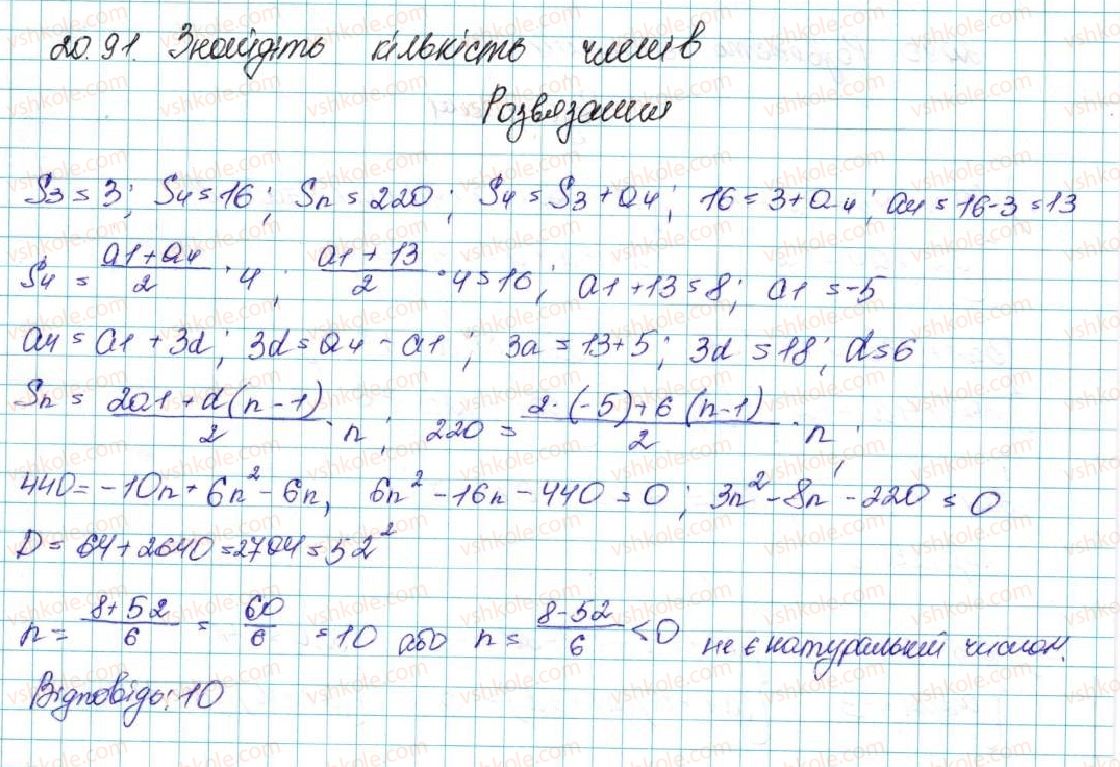 20.91. Знайдіть кількість членів
Розвязання
S3 = 3; S4 = 16; Sn = 220; S4 = S3 + a4; 16 = 3 + a4; a4 = 16 - 3 = 13
S4 = (a1 + a4)/2 · 4; (a1 + 13)/2 · 4 = 16; a1 + 13 = 8; a1 = -5
a4 = a1 + 3d; 3d = a4 - a1; 3a = 13 + 5; 3d = 18; d = 6
Sn = (2a1 + d(n - 1))/2 · n; 220 = (2 · (-5) + 6(n - 1))/2 · n;
440 = -10n + 6n² - 6n, 6n² - 16n - 440 = 0; 3n² - 8n - 220 = 0
D = 64 + 2640 = 2704 = 52²
n = (8 + 52)/6 = 60/6 = 10 або n = (8 - 52)/6 < 0 не є натуральний числом.
Відповідь: 10